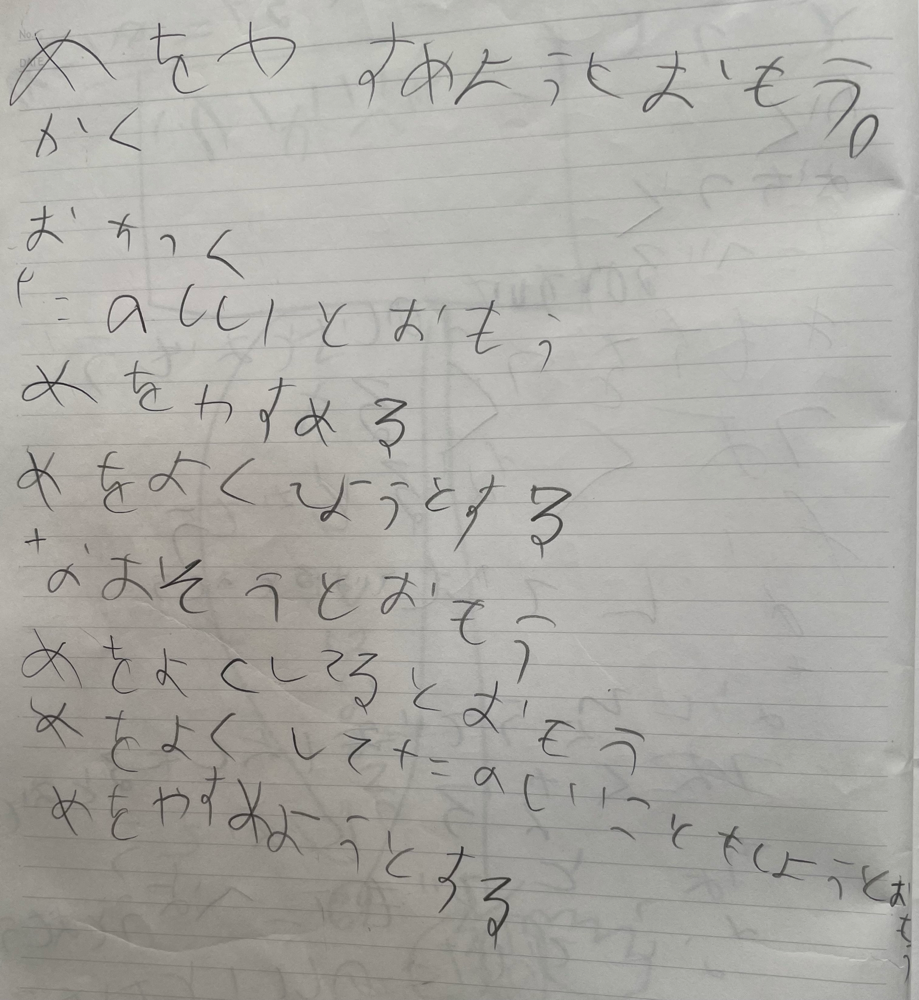 めをやすめようとおもう。
かく
おちつく
たのしいとおもう
めをやすめる
めをよくしようとする
なおそうとおもう
めをよくしてるとおもう
めをよくしてたのしいこともしようとおもう
めをやすめようとする